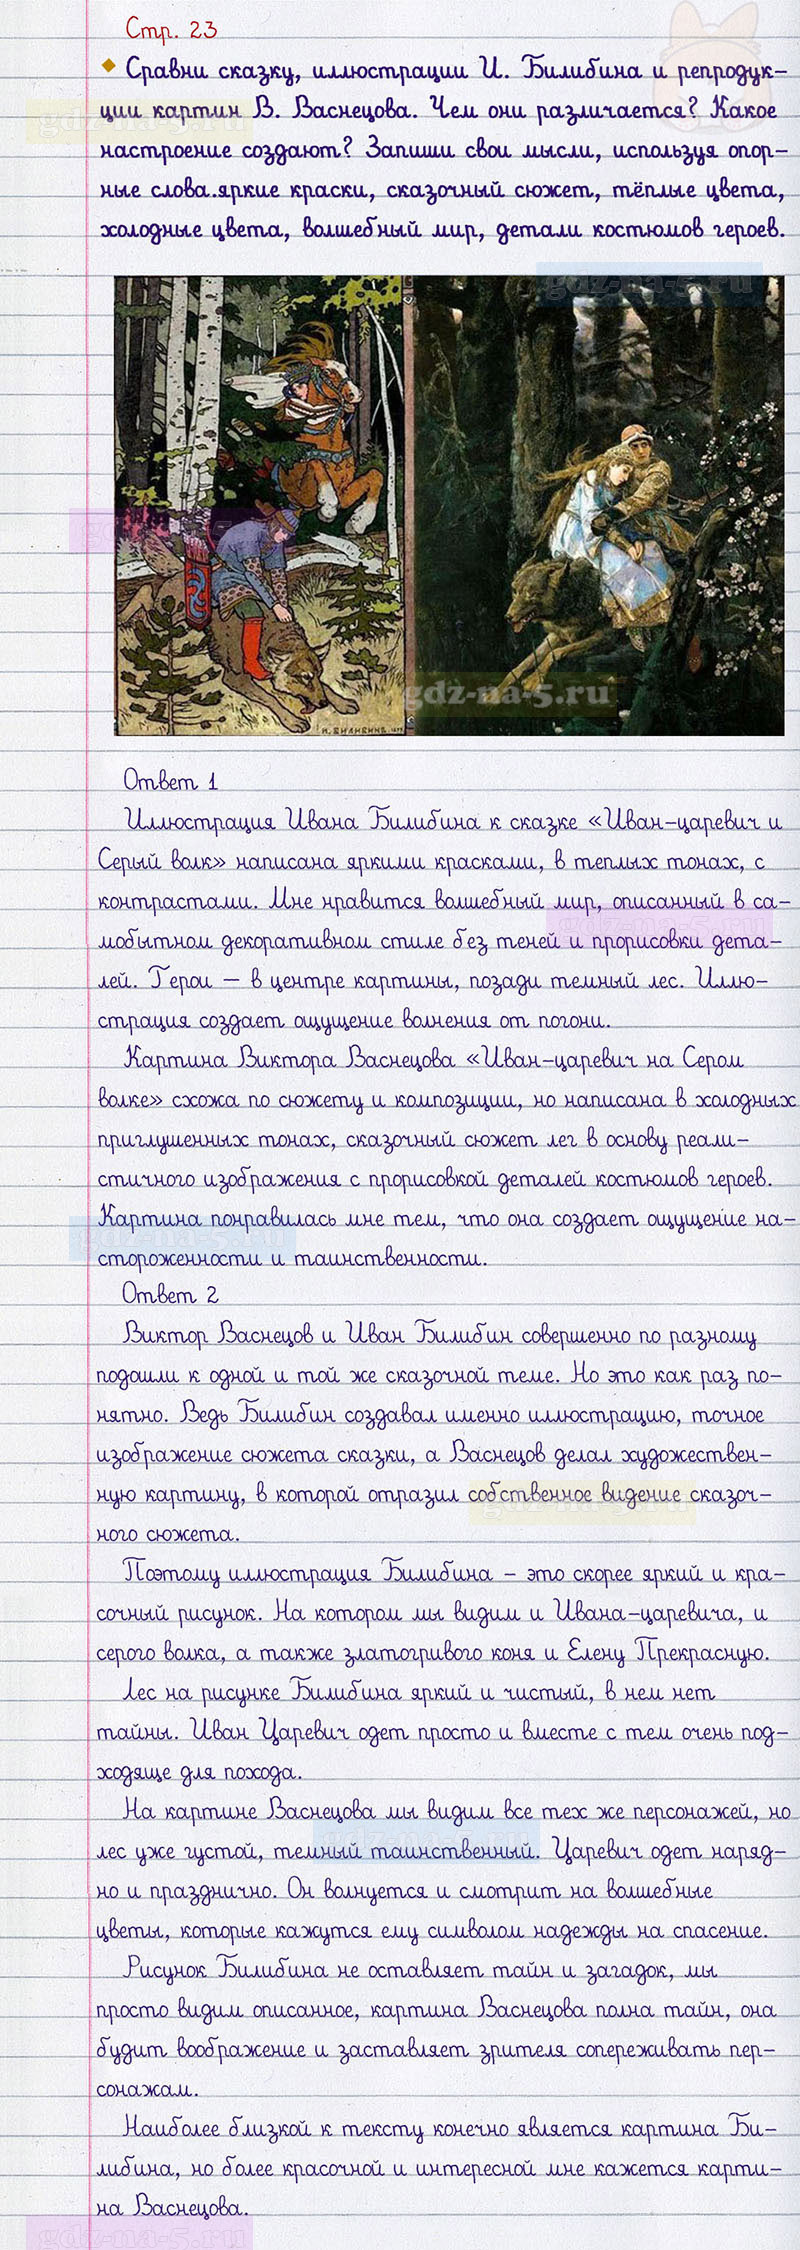 Стр. 23
Сравни сказку, иллюстрации И. Билибина и репродук-
ции картин В. Васнецова. Чем они различается? Какое
gdz-na-5.ru
настроение создают? Запиши свои мысли, используя опор-
ные слова.яркие краски, сказочный сюжет, тёплые цвета,
холодные цвета, волшебный мир, детали костюмов героев.
gdz-na-5.ru
gdz-na-5.ru
gdz-na-5.ru
И. БИЛИБИНЪ. 1899
Ответ 1
Иллюстрация Ивана Билибина к сказке «Иван-царевич и
Серый волк» написана яркими красками, в теплых тонах, с
контрастами. Мне нравится волшебный мир, описанный в са-
gdz-na-5.ru
мобытном декоративном стиле без теней и прорисовки дета-
лей. Герои – в центре картины, позади темный лес. Иллю-
страция создает ощущение волнения от погони.
Картина Виктора Васнецова «Иван-царевич на Сером
волке» схожа по сюжету и композиции, но написана в холодных
приглушенных тонах, сказочный сюжет лег в основу реали-
стичного изображения с прорисовкой деталей костюмов героев.
Картина понравилась мне тем, что она создает ощущение на-
gdz-na-5.ru
стороженности и таинственности.
Ответ 2
Виктор Васнецов и Иван Билибин совершенно по разному
подошли к одной и той же сказочной теме. Но это как раз по-
нятно. Ведь Билибин создавал именно иллюстрацию, точное
изображение сюжета сказки, а Васнецов делал художествен-
ную картину, в которой отразил собственное видение сказоч-
gdz-na-5.ru
ного сюжета.
Поэтому иллюстрация Билибина – это скорее яркий и кра-
сочный рисунок. На котором мы видим и Ивана-царевича, и
серого волка, а также златогривого коня и Елену Прекрасную.
Лес на рисунке Билибина яркий и чистый, в нем нет
тайны. Иван Царевич одет просто и вместе с тем очень под-
ходяще для похода.
На картине Васнецова мы видим все тех же персонажей, но
лес уже густой, темный таинственный. Царевич одет наряд-
gdz-na-5.ru
но и празднично. Он волнуется и смотрит на волшебные
цветы, которые кажутся ему символом надежды на спасение.
Рисунок Билибина не оставляет тайн и загадок, мы
просто видим описанное, картина Васнецова полна тайн, она
будит воображение и заставляет зрителя сопереживать пер-
сонажам.
Наиболее близкой к тексту конечно является картина Би-
либина, но более красочной и интересной мне кажется карти-
на Васнецова.
gdz-na-5.ru